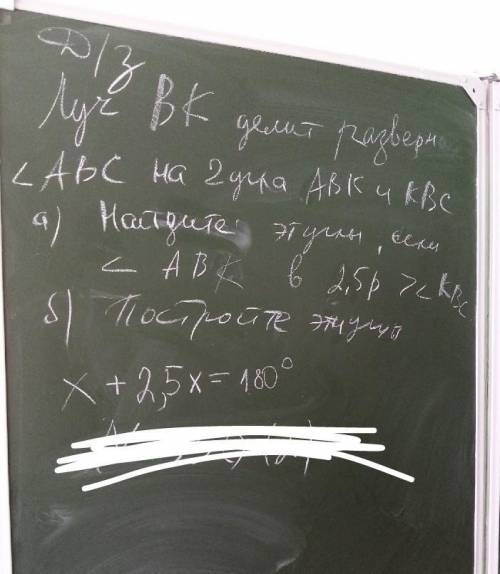 Д/З
Луч ВК делит разверн
<АВС на 2 угла АВК и КВС
а) Найдите эт углы, если
< АВК в 2,5р > < КВС
б) Постройте эти углы
х + 2,5х = 180°